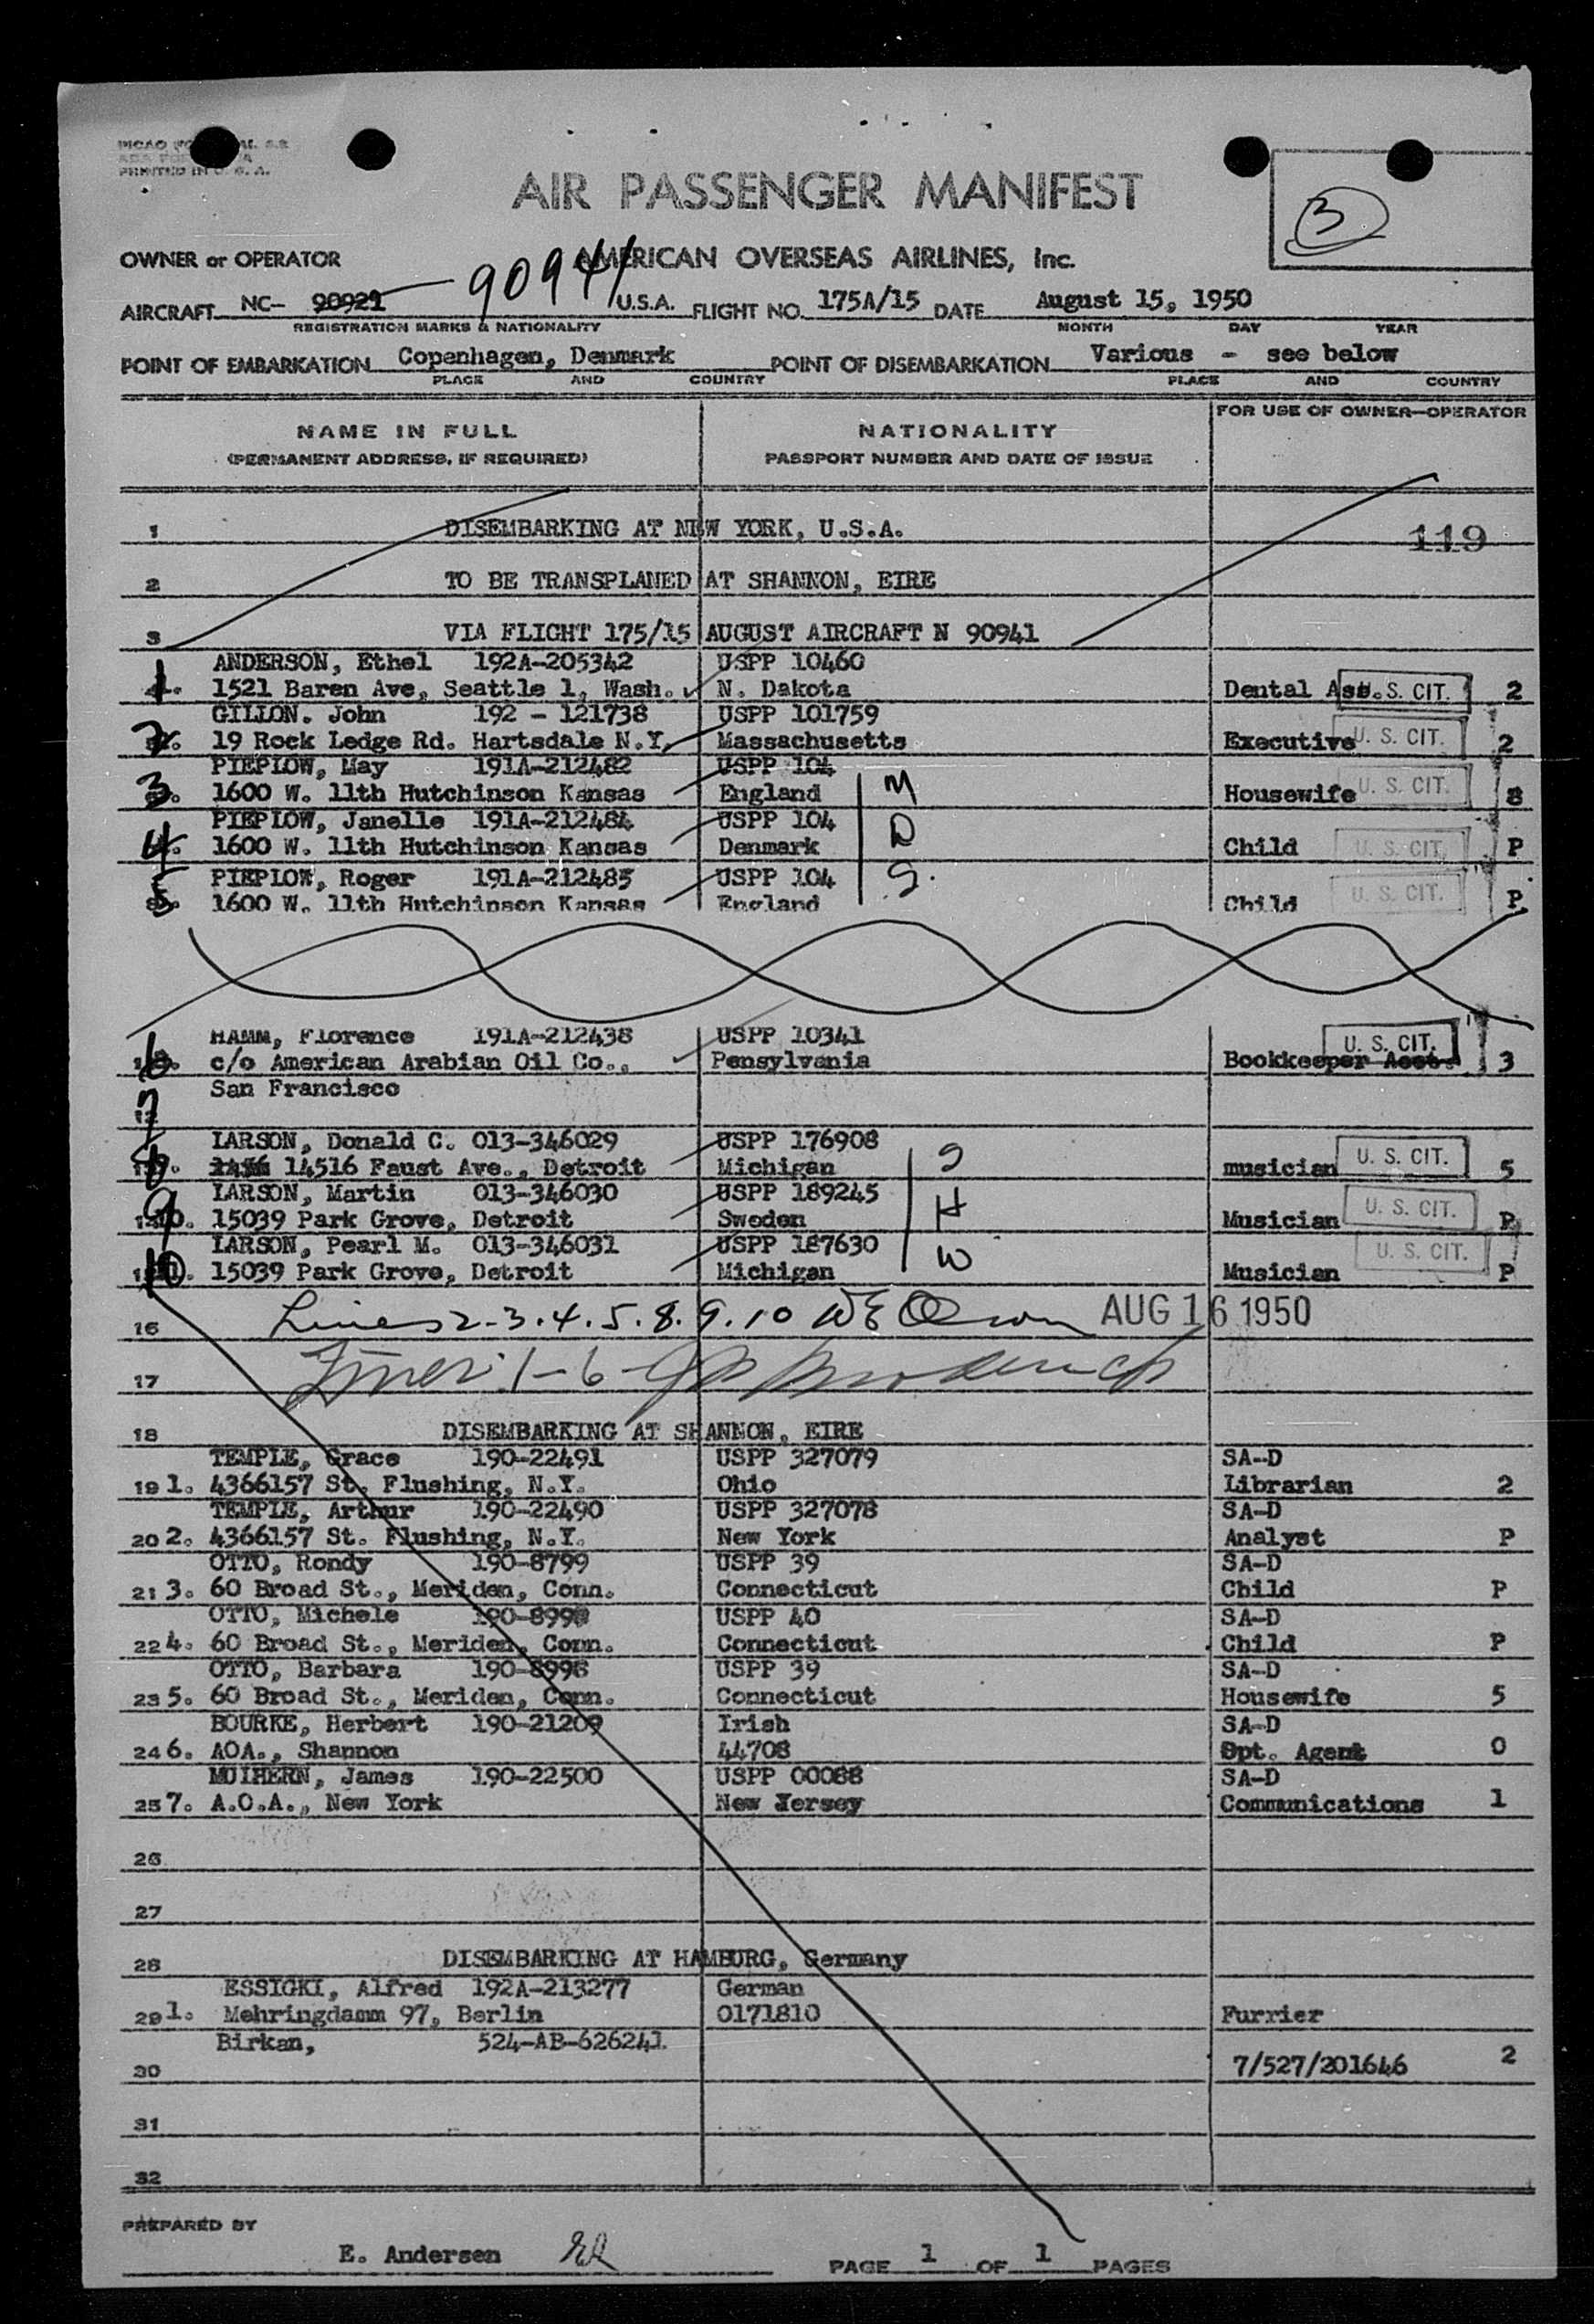 PRINTED IN U. S. A.
AIR PASSENGER MANIFEST
3
OWNER or OPERATOR AMERICAN OVERSEAS AIRLINES, Inc.
AIRCRAFT NC- 90921 90941 U.S.A. FLIGHT NO. 175A/15 DATE August 15, 1950
REGISTRATION MARKS & NATIONALITY MONTH DAY YEAR
POINT OF EMBARKATION Copenhagen, Denmark POINT OF DISEMBARKATION Various - see below
PLACE AND COUNTRY PLACE AND COUNTRY
FOR USE OF OWNER—OPERATOR
NAME IN FULL NATIONALITY
(PERMANENT ADDRESS, IF REQUIRED) PASSPORT NUMBER AND DATE OF ISSUE
1 DISEMBARKING AT NEW YORK, U.S.A. 119
2 TO BE TRANSPLANED AT SHANNON, EIRE
3 VIA FLIGHT 175/15 AUGUST AIRCRAFT N 90941
ANDERSON, Ethel 192A-205342 USPP 10460
1. 1521 Baren Ave, Seattle 1, Wash. N. Dakota Dental Ass. U. S. CIT. 2
GILLON. John 192 - 121738 USPP 101759
2. 19 Rock Ledge Rd. Hartsdale N.Y. Massachusetts Executive U. S. CIT. 2
PIEPLOW, May 191A-212482 USPP 104
3. 1600 W. 11th Hutchinson Kansas England M Housewife U. S. CIT. 8
PIEPLOW, Janelle 191A-212484 USPP 104
4. 1600 W. 11th Hutchinson Kansas Denmark D Child U. S. CIT. P
PIEPLOW, Roger 191A-212485 USPP 104
5. 1600 W. 11th Hutchinson Kansas England S. Child U. S. CIT. P
HAMM, Florence 191A-212438 USPP 10341
6 c/o American Arabian Oil Co., Pensylvania Bookkeeper Acct. U. S. CIT. 3
San Francisco
7
LARSON, Donald C. 013-346029 USPP 176908
8 14516 Faust Ave., Detroit Michigan S musician U. S. CIT. 5
LARSON, Martin 013-346030 USPP 189245
9 15039 Park Grove, Detroit Sweden H Musician U. S. CIT. P
LARSON, Pearl M. 013-346031 USPP 187630
10 15039 Park Grove, Detroit Michigan W Musician U. S. CIT. P
16 Lines 2-3.4.5.8.9.10 AUG 16 1950
17 Lines 1-6
18 DISEMBARKING AT SHANNON, EIRE
TEMPLE, Grace 190-22491 USPP 327079 SA-D
19 1. 4366157 St. Flushing, N.Y. Ohio Librarian 2
TEMPLE, Arthur 190-22490 USPP 327078 SA-D
20 2. 4366157 St. Flushing, N.Y. New York Analyst P
OTTO, Rondy 190-8799 USPP 39 SA-D
21 3. 60 Broad St., Meriden, Conn. Connecticut Child P
OTTO, Michele USPP 40 SA-D
22 4. 60 Broad St., Meriden, Conn. Connecticut Child P
OTTO, Barbara 190-8998 USPP 39 SA-D
23 5. 60 Broad St., Meriden, Conn. Connecticut Housewife 5
BOURKE, Herbert 190-21209 Irish SA-D
24 6. AOA., Shannon 44708 Opt. Agent 0
MUIHERN, James 190-22500 USPP 00088 SA-D
25 7. A.O.A., New York New Jersey Communications 1
26
27
28 DISEMBARKING AT HAMBURG, Germany
ESSIGKI, Alfred 192A-213277 German
29 1. Mehringdamm 97, Berlin 0171810 Furrier
Birkan, 524-AB-626241
30 7/527/201646 2
31
32
PREPARED BY
E. Andersen
PAGE 1 OF 1 PAGES